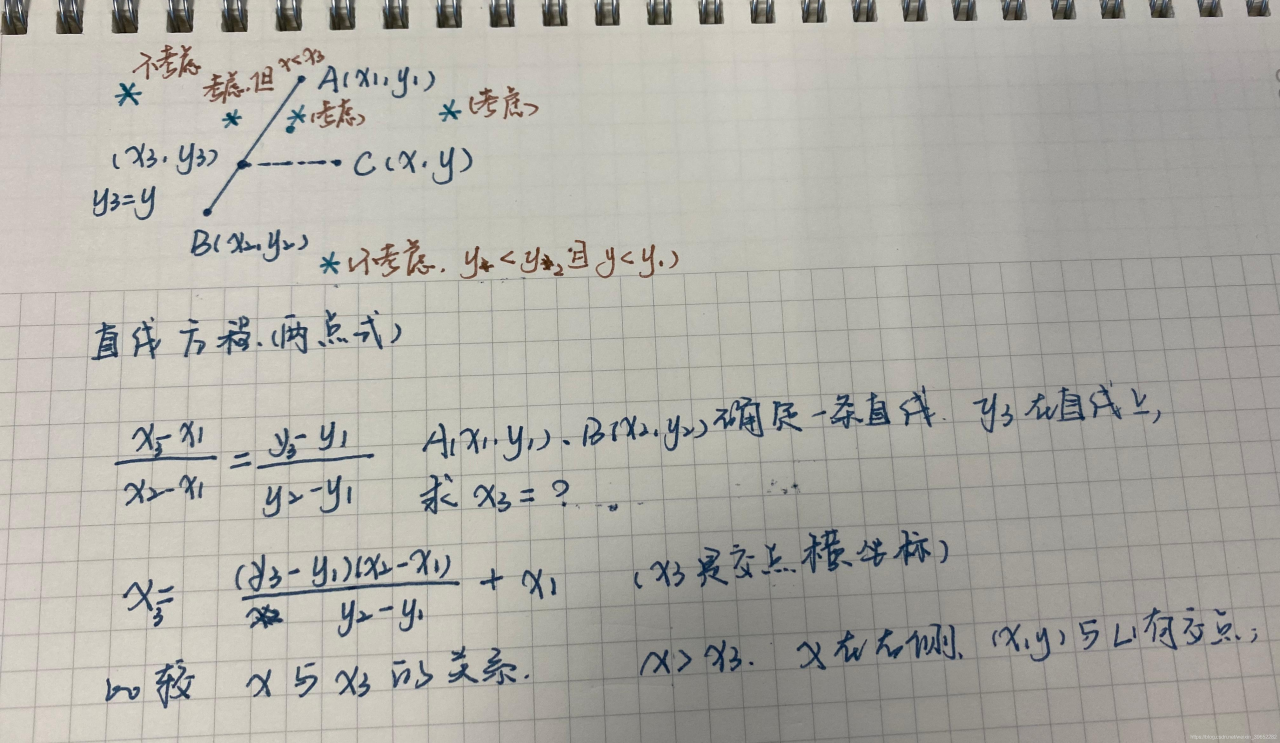 不考虑
考虑.但 x<x3
A(x1,y1)
*
*
*(考虑)
*(考虑)
(x3,y3)
C(x,y)
y3=y
B(x2,y2)
*(不考虑. y<y2且y<y1)
直线方程.(两点式)
(x3-x1)/(x2-x1) = (y3-y1)/(y2-y1) A(x1,y1)、B(x2,y2)确定一条直线. y3在直线上,
求 x3=?
x3= (y3-y1)(x2-x1)/(y2-y1) + x1 (x3是交点横坐标)
比较 x与x3的关系. x>x3. x在右侧. (x,y)与L有交点;